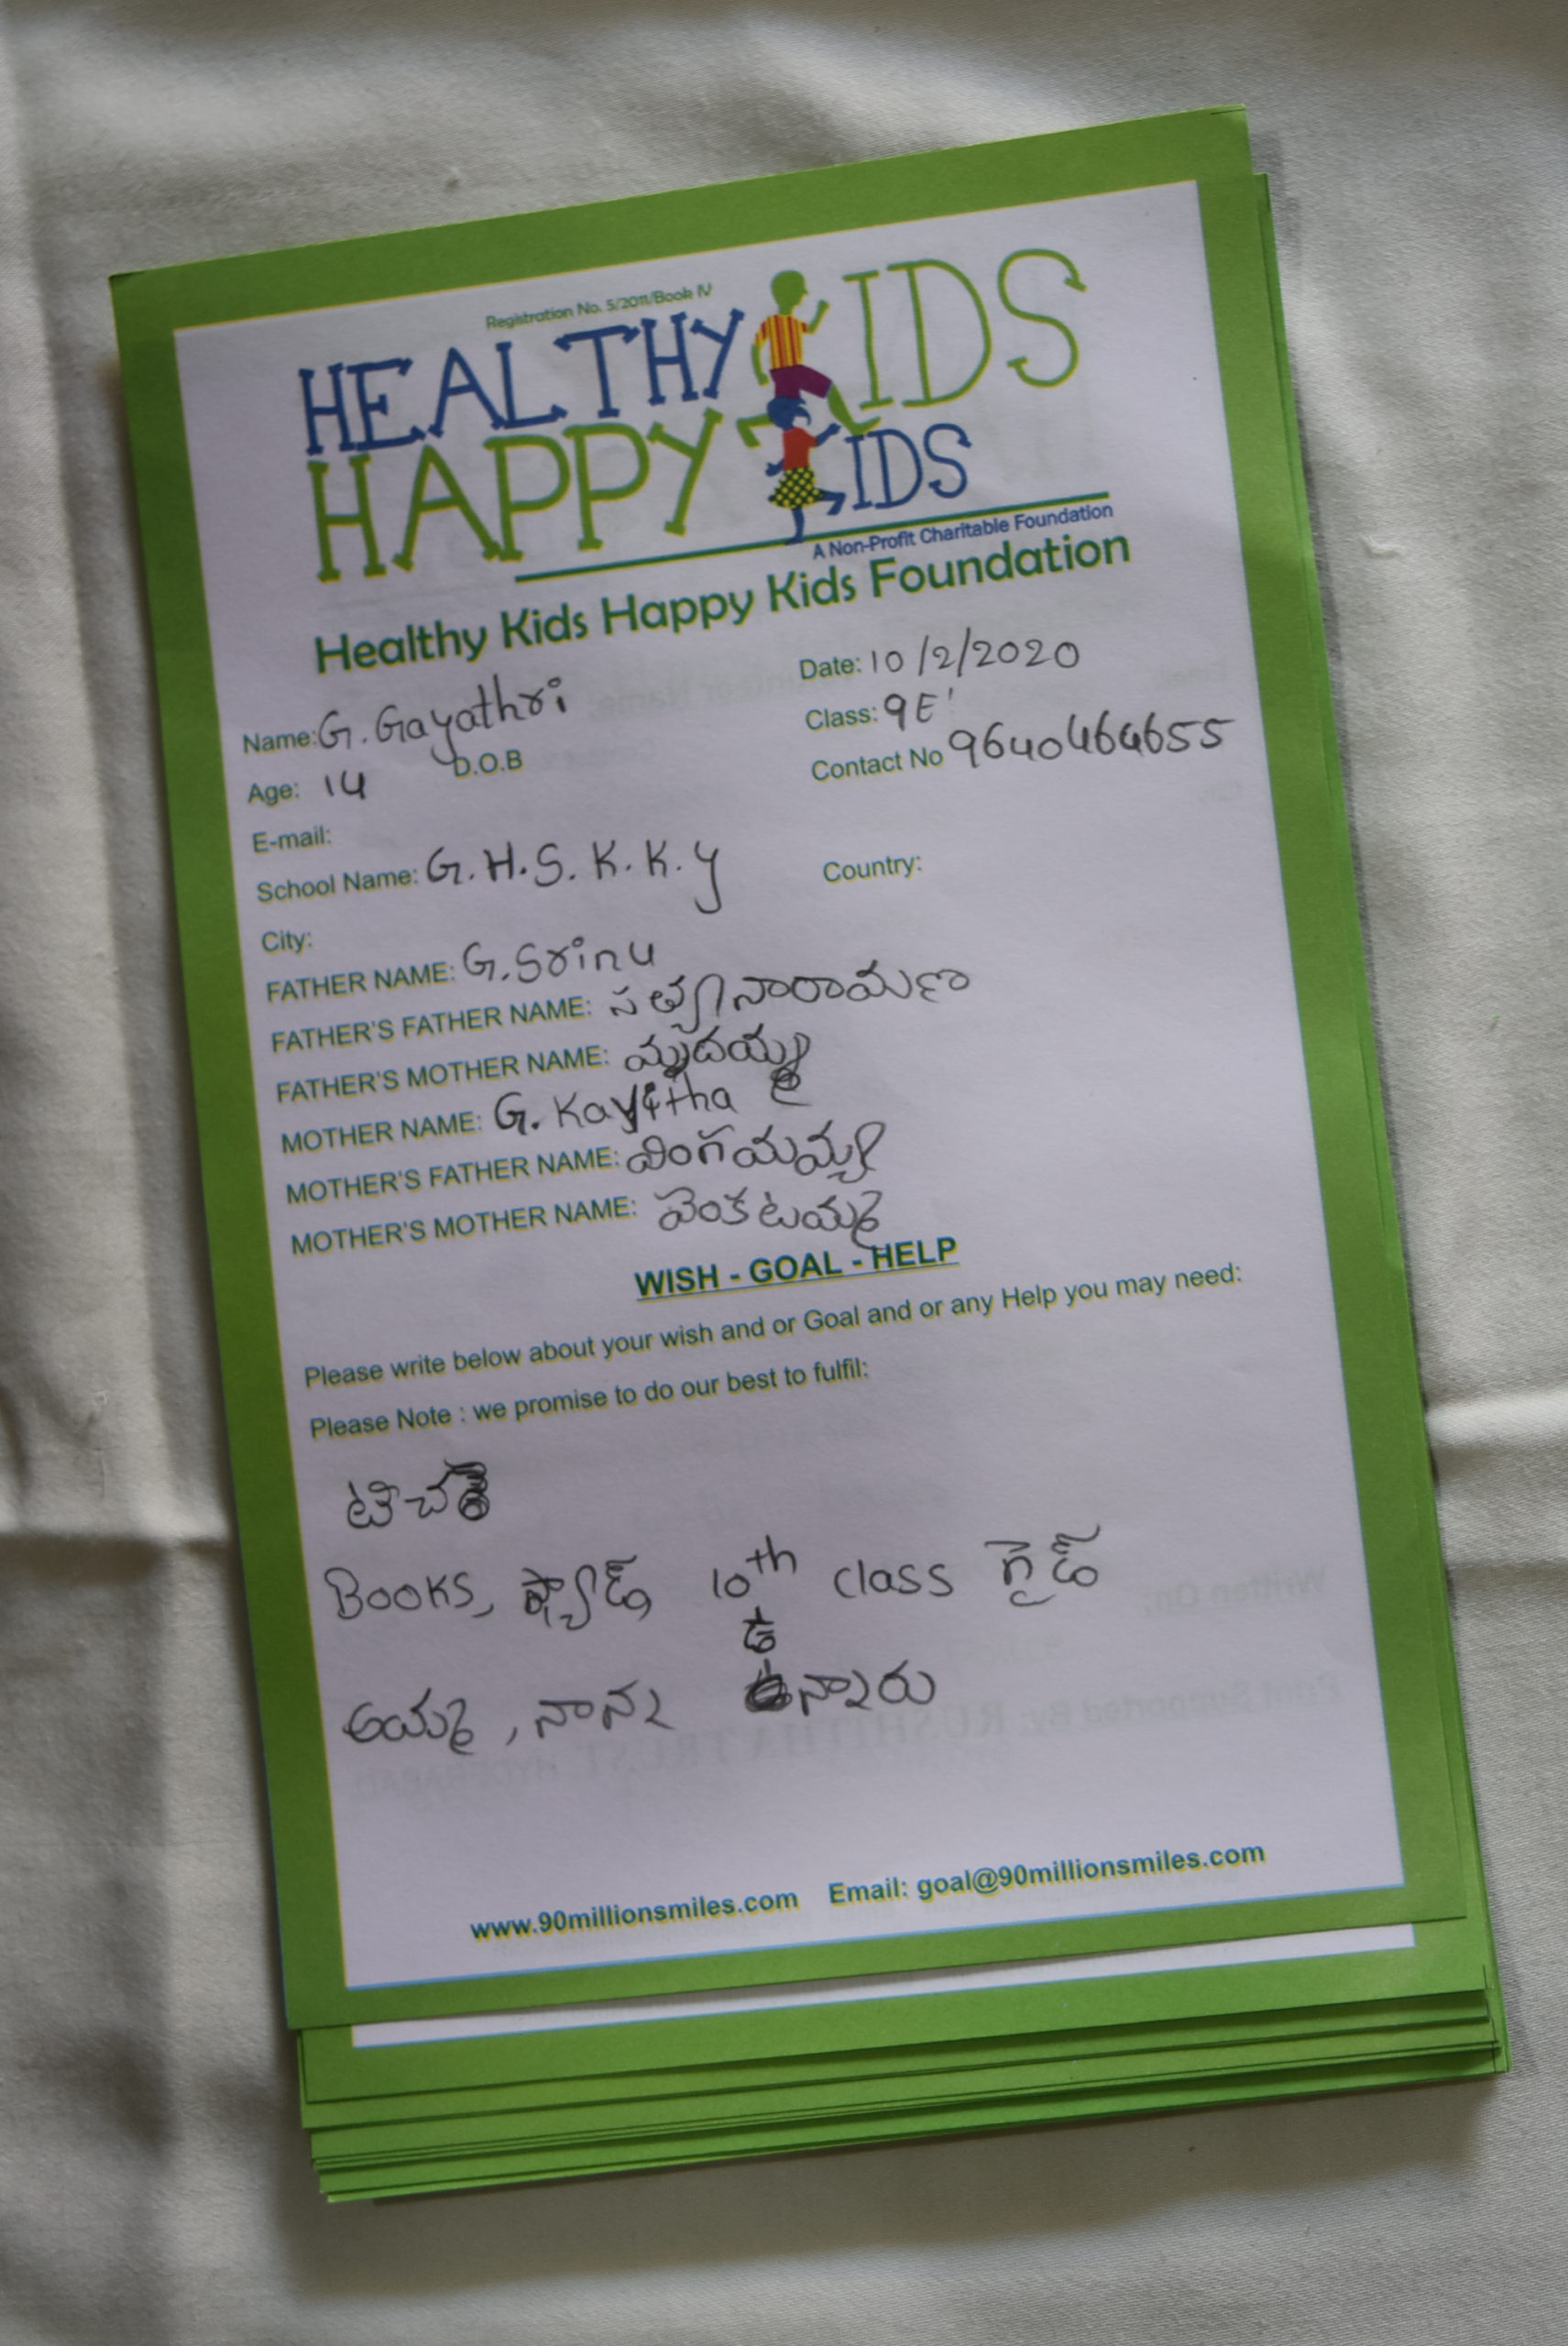 Registration No. 5/2011/Book IV
HEALTHY KIDS
HAPPY KIDS
A Non-Profit Charitable Foundation
Healthy Kids Happy Kids Foundation
Name: G. Gayathri Date: 10/2/2020
Class: 9E'
Age: 14 D.O.B Contact No 9640464655
E-mail:
School Name: G.H.S. K.K.y Country:
City:
FATHER NAME: G.Srinu
FATHER'S FATHER NAME: సత్యనారాయణ
FATHER'S MOTHER NAME:
MOTHER NAME: G. Kavitha
MOTHER'S FATHER NAME:
MOTHER'S MOTHER NAME: వెంకటమ్మ
WISH - GOAL - HELP
Please write below about your wish and or Goal and or any Help you may need:
Please Note : we promise to do our best to fulfil:
Books, ప్యాడ్ 10th class గైడ్
అమ్మ, నాన్న ఉన్నారు
www.90millionsmiles.com Email: goal@90millionsmiles.com